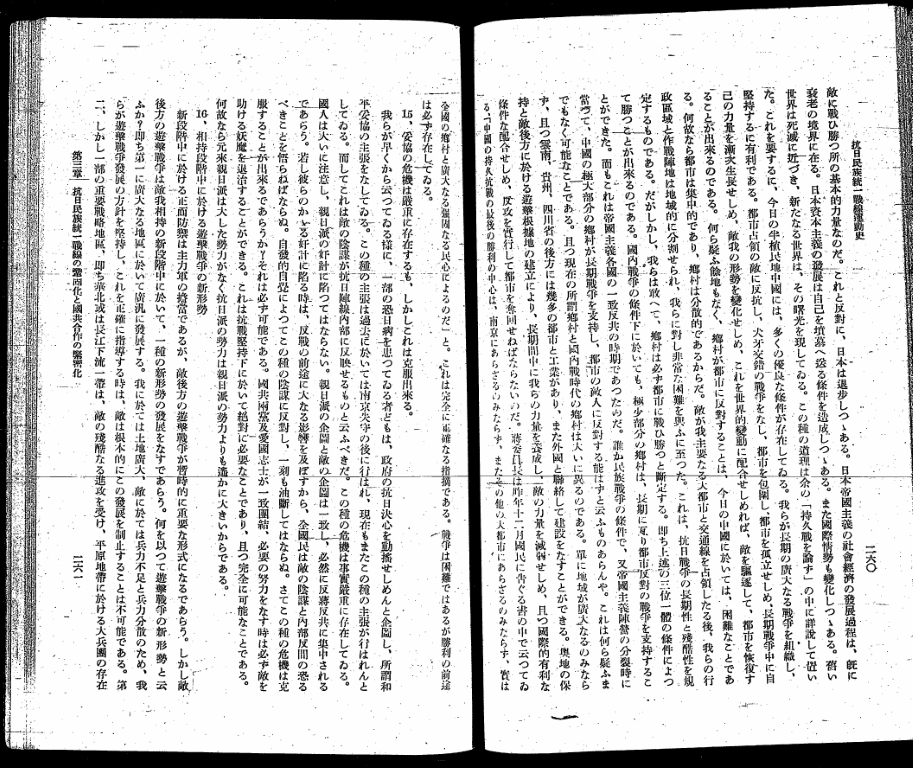 抗日民族統一戰線運動史
二六〇
敵に戰ひ勝つ所の基本的力量なのだ。これと反對に、日本は退步しつゝある。日本帝國主義の社會經濟の發展過程は、旣に
衰老の境界に在る。日本資本主義の發展は自己を墳墓へ送る條件を造成しつゝある。また國際情勢も變化しつゝある。舊い
世界は死滅に近づき、新たなる世界は、その曙光を現してゐる。この種の道理は余の「持久戰を論ず」の中に詳說して置い
た。これを要するに、今日の半植民地中國には、多くの優良な條件が存在してゐる。我らが長期の廣大なる戰爭を組織し、
堅持するに有利である。都市占領の敵に反抗し、犬牙交錯の戰爭をなし、都市を包圍し、都市を孤立せしめ、長期戰爭中に自
己の力量を漸次生長せしめ、敵我の形勢を變化せしめ、これを世界的變動に配合せしめれば、敵を驅逐して、都市を恢復す
ることが出來るのである。何ら疑ふ餘地もなく、鄕村が都市に反對することは、今日の中國に於いては、困難なことであ
る。何故なら都市は集中的であり、鄕村は分散的であるからだ。敵が我主要なる大都市と交通線を占領したる後、我らの行
政區域と作戰陣地は地域的に分割せられ、我らに對し非常な困難を與ふに至つた。これは、抗日戰爭の長期性と殘酷性を規
定するものである。だがしかし、我らは敢へて、鄕村は必ず都市に戰ひ勝つと斷定する。即ち上述の三位一體の條件によつ
て勝つことが出來るのである。國內戰爭の條件下に於いても、極少部分の鄕村は、長期に亙り都市反對の戰爭を支持するこ
とができた。而もこれは帝國主義各國の一致反共の時期であつたのだ。誰か民族戰爭の條件で、又帝國主義陣營の分裂時に
當つて、中國の極大部分の鄕村が長期戰爭を支持し、都市の敵人に反對する能はずと云ふものあらんや。これは何ら疑ふま
でもなく可能なことである。且つ現在の所謂鄕村と國內戰時代の鄕村は大いに異るのである。單に地域が廣大なるのみなら
ず、且つ雲南、貴州、四川省の後方には幾多の都市と工業があり、また外國と聯絡して建設をなすことができる。奧地の保
持と敵後方に於ける遊擊根據地の建立により、長期間中に我らの力量を養成し、敵の力量を減弱せしめ、且つ國際的有利な
條件を配合せしめ、反攻を實行して都市を奪回せねばならないのだ。蔣委員長は昨年十二月國民に吿ぐる書の中で云つてゐ
る、「中國の持久抗戰の最後の勝利の中心は、南京にあらざるのみならず、またその他の大都市にあらざるのみならず、實は
全國の鄕村と廣大なる强固なる民心によるのだ」と。これは完全に正確なる指摘である。戰爭は困難ではあるが勝利の前途
は必ず存在してゐる。
15、妥協の危機は嚴重に存在するも、しかしこれは克服出來る。
我らが早くから云つてゐる樣に、一部の恐日病を患つてゐる者どもは、政府の抗日決心を動搖せしめんと企圖し、所謂和
平妥協の主張をなしてゐる。この種の主張は過去に於いては南京失守の後に行はれ、現在もまたこの種の主張が行はれんと
してゐる。而してこれは敵の陰謀が抗日陣線內部に反映せるものと云ふべきだ。この種の危機は事實嚴重に存在してゐる。
國人は大いに注意し、親日派の奸計に陷つてはならない。親日派の企圖と敵の企圖は一致し、必然に反蔣反共に集中される
であらう。若し彼らのかゝる奸計に陷る時は、反戰の前途に大なる影響を及ぼすから、全國民は敵の陰謀と內部反間の恐る
べきことを悟らねばならぬ。自發的自覺によつてこの種の陰謀に反對し、一刻も油斷してはならぬ。さてこの種の危機は克
服することが出來るであらうか？それは必ず可能である。國共兩黨及愛國志士が一致團結、必要の努力をなす時は必ず敵を
助ける妖魔を退治することができる。これは抗戰堅持下に於いて絕對に必要なことであり、且つ完全に可能なことである。
何故なら元來親日派は大した勢力がなく抗日派の勢力は親日派の勢力よりも遙かに大きいからである。
16、相持段階中に於ける遊擊戰爭の新形勢
新段階中に於ける正面防禦は主力軍の擔當であるが、敵後方の遊擊戰爭が暫時的に重要な形式になるであらう。しかし敵
後方の遊擊戰爭は敵我相持の新段階中に於いて、一種の新形勢の發展をなすであらう。何を以つて遊擊戰爭の新形勢と云
ふか？即ち第一に廣大なる地區に於いて廣汎に發展する。我に於ては土地廣大、敵に於ては兵力不足と兵力分散のため、我
らが遊擊戰爭發展の方針を堅持し、これを正確に指導する時は、敵は根本的にこの發展を制止することは不可能である。第
二、しかし一部の重要戰略地區、即ち華北或は長江下流一帶は、敵の殘酷なる進攻を受け、平原地帶に於ける大兵團の存在
第三章 抗日民族統一戰線の鞏固化と國共合作の緊密化
二六一